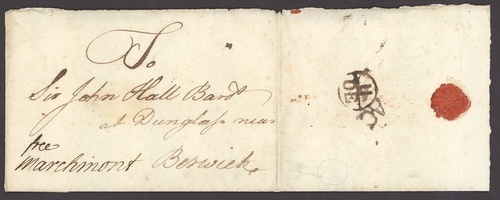 To
Sir John Hall Bart
at Dunglass near
free
Marchmont Berwick
DE